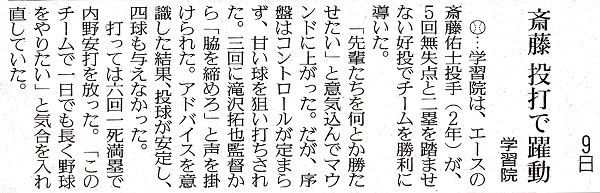 9日
斎藤 投打で躍動
学習院
⚾…学習院は、エースの
斎藤佑士投手（2年）が、
5回無失点と二塁を踏ませ
ない好投でチームを勝利に
導いた。
「先輩たちを何とか勝た
せたい」と意気込んでマウ
ンドに上がった。だが、序
盤はコントロールが定まら
ず、甘い球を狙い打ちされ
た。三回に滝沢拓也監督か
ら「脇を締めろ」と声を掛
けられた。アドバイスを意
識した結果、投球が安定し、
四球も与えなかった。
打っては六回一死満塁で
内野安打を放った。「この
チームで一日でも長く野球
をやりたい」と気合を入れ
直していた。